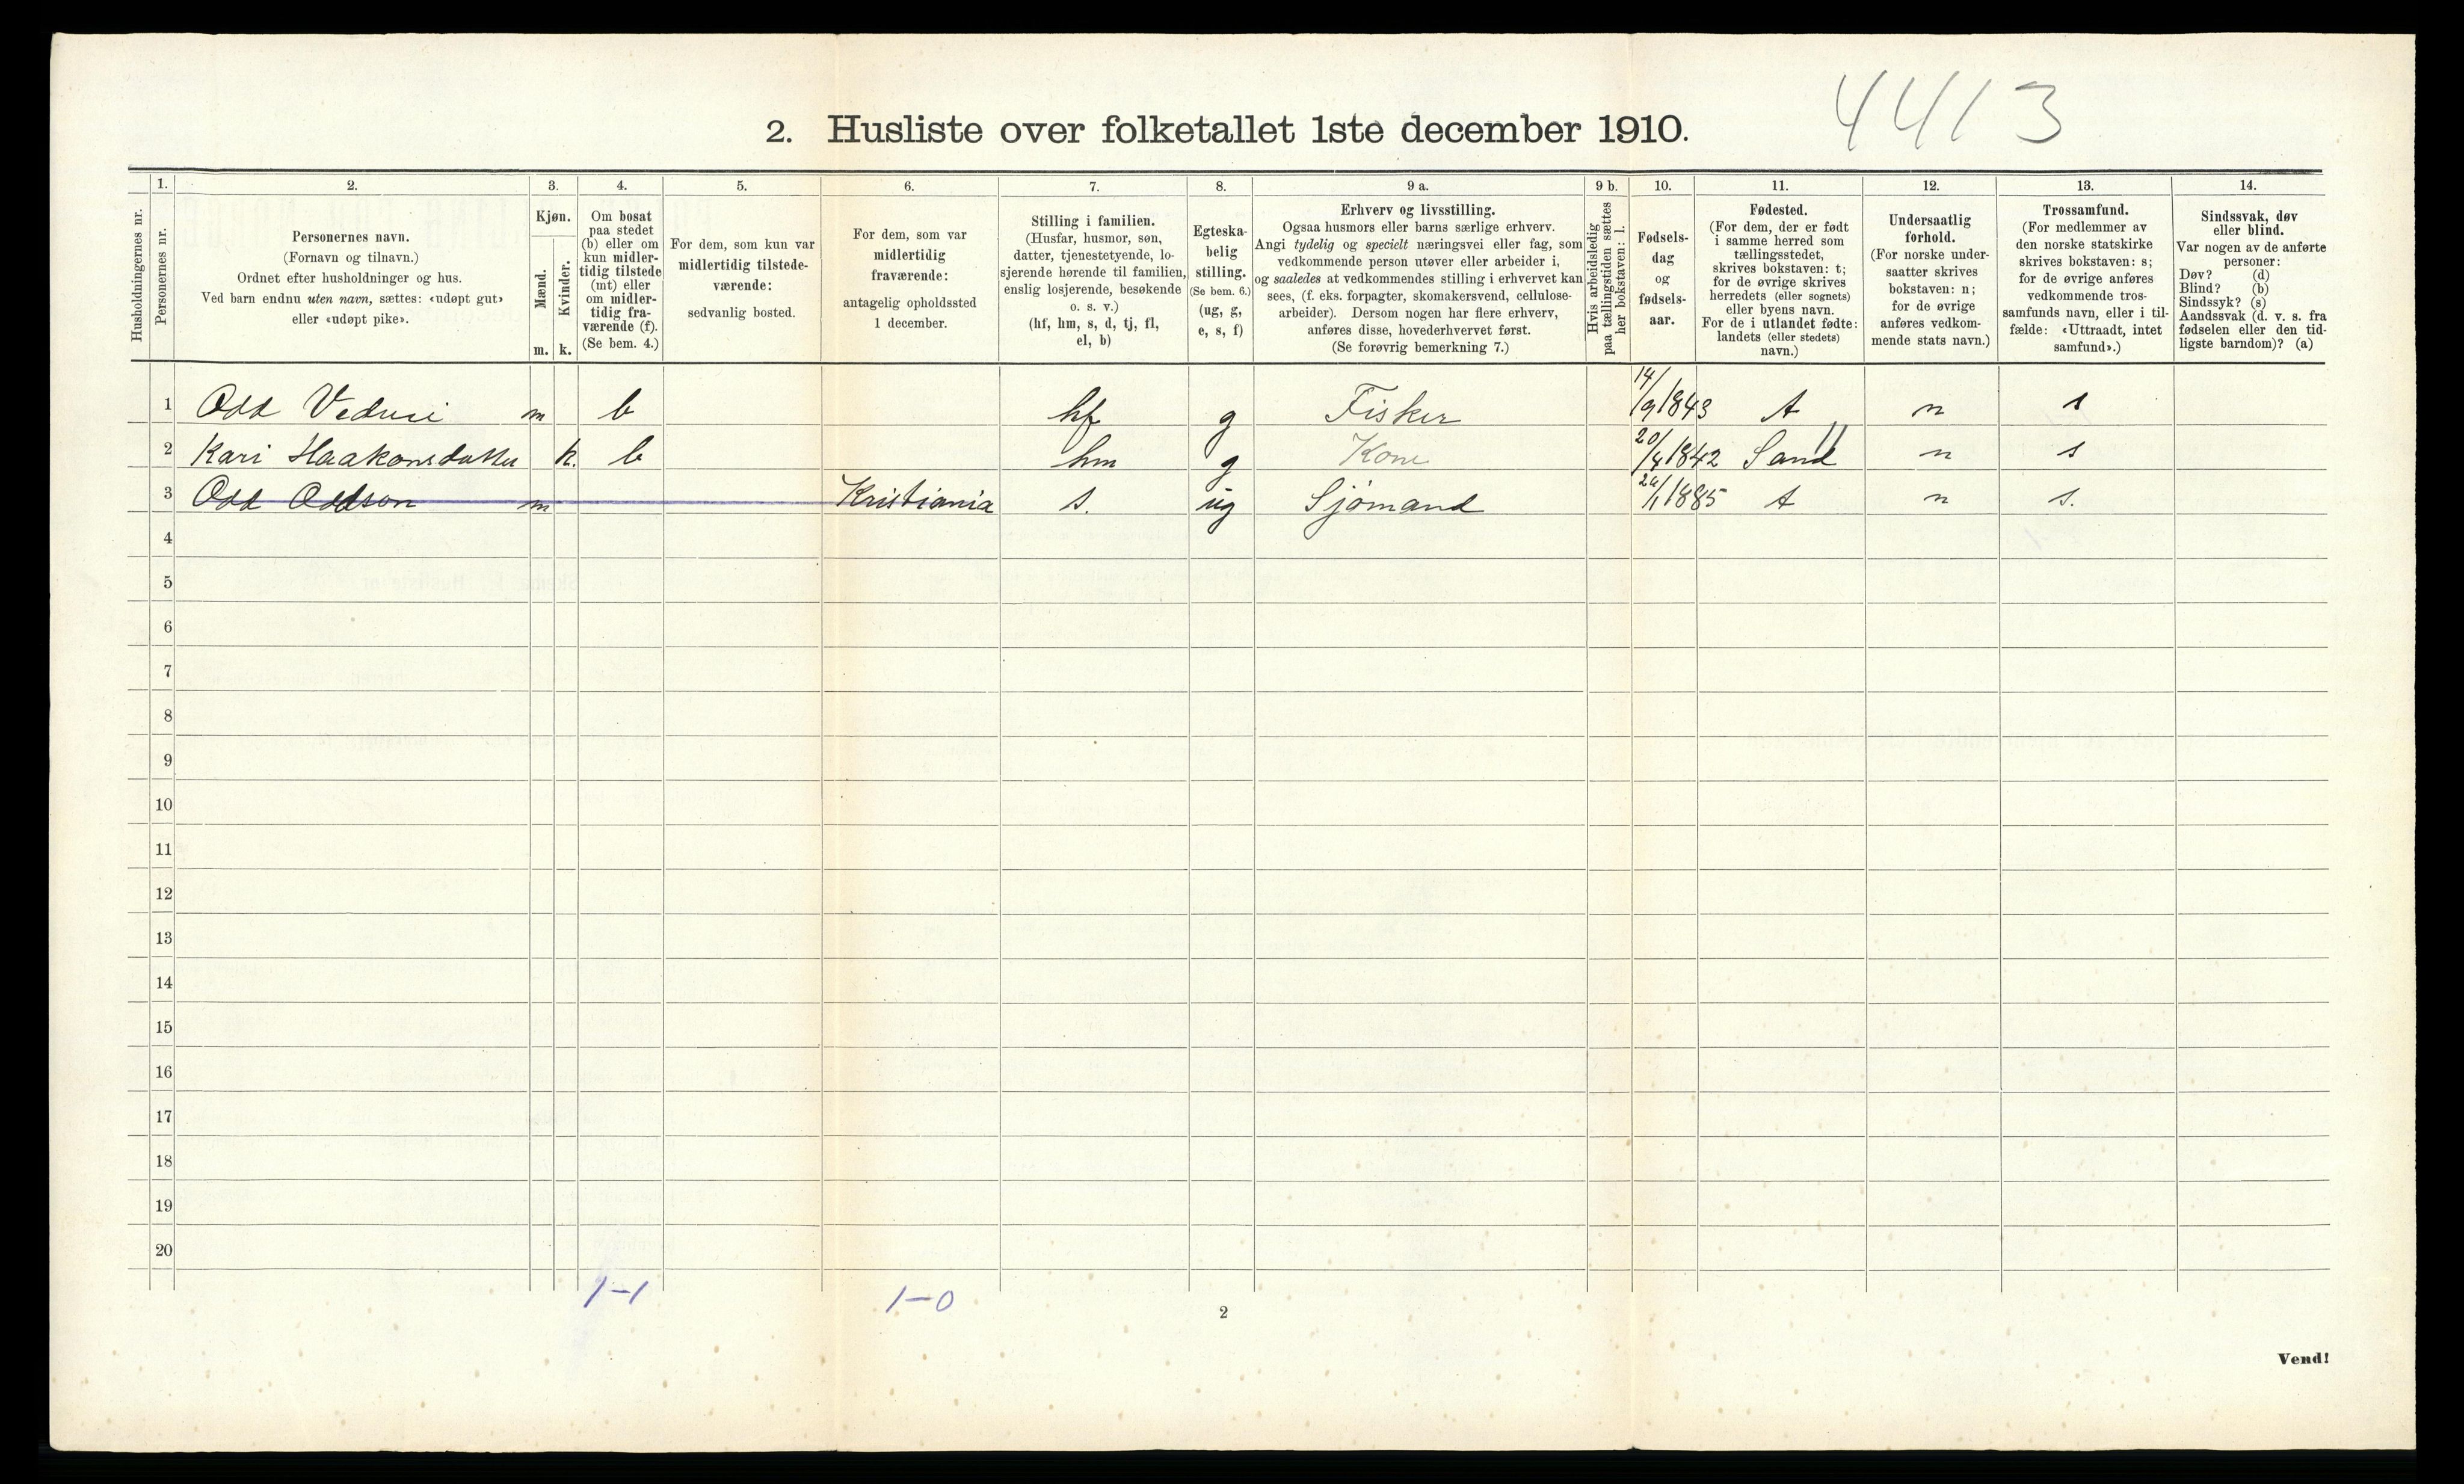 4413
2. Husliste over folketallet 1ste december 1910.
Husholdningernes nr.
1.
Personernes nr.
2.
Personernes navn.
(Fornavn og tilnavn.)
Ordnet efter husholdninger og hus.
Ved barn endnu uten navn, sættes: «udøpt gut»
eller «udøpt pike».
3.
Kjøn.
Mænd.
Kvinder.
m. k.
4.
Om bosat
paa stedet
(b) eller om
kun midler-
tidig tilstede
(mt) eller
om midler-
tidig fra-
værende (f).
(Se bem. 4.)
5.
For dem, som kun var
midlertidig tilstede-
værende:
sedvanlig bosted.
6.
For dem, som var
midlertidig
fraværende:
antagelig opholdssted
1 december.
7.
Stilling i familien.
(Husfar, husmor, søn,
datter, tjenestetyende, lo-
sjerende hørende til familien,
enslig losjerende, besøkende
o. s. v.)
(hf, hm, s, d, tj, fl,
el, b)
8.
Egteska-
belig
stilling.
(Se bem. 6.)
(ug, g,
e, s, f)
9 a.
Erhverv og livsstilling.
Ogsaa husmors eller barns særlige erhverv.
Angi tydelig og specielt næringsvei eller fag, som
vedkommende person utøver eller arbeider i,
og saaledes at vedkommendes stilling i erhvervet kan
sees, (f. eks. forpagter, skomakersvend, cellulose-
arbeider). Dersom nogen har flere erhverv,
anføres disse, hovederhvervet først.
(Se forøvrig bemerkning 7.)
9 b.
Hvis arbeidsledig
paa tællingstiden sættes
her bokstaven: l.
10.
Fødsels-
dag
og
fødsels-
aar.
11.
Fødested.
(For dem, der er født
i samme herred som
tællingsstedet,
skrives bokstaven: t;
for de øvrige skrives
herredets (eller sognets)
eller byens navn.
For de i utlandet fødte:
landets (eller stedets)
navn.)
12.
Undersaatlig
forhold.
(For norske under-
saatter skrives
bokstaven: n;
for de øvrige
anføres vedkom-
mende stats navn.)
13.
Trossamfund.
(For medlemmer av
den norske statskirke
skrives bokstaven: s;
for de øvrige anføres
vedkommende tros-
samfunds navn, eller i til-
fælde: «Uttraadt, intet
samfund».)
14.
Sindssvak, døv
eller blind.
Var nogen av de anførte
personer:
Døv? (d)
Blind? (b)
Sindssyk? (s)
Aandssvak (d. v. s. fra
fødselen eller den tid-
ligste barndom)? (a)
1 Odd Vedvei m b hf g Fisker 14/9 1843 t n s
2 Kari Haakonsdatter k. b hm g Kone 20/4 1842 Sand n s
3 Odd Oddson m Kristiania s. ug Sjømand 1885 t n s.
4
5
6
7
8
9
10
11
12
13
14
15
16
17
18
19
20
1-1 1-0
2
Vend!